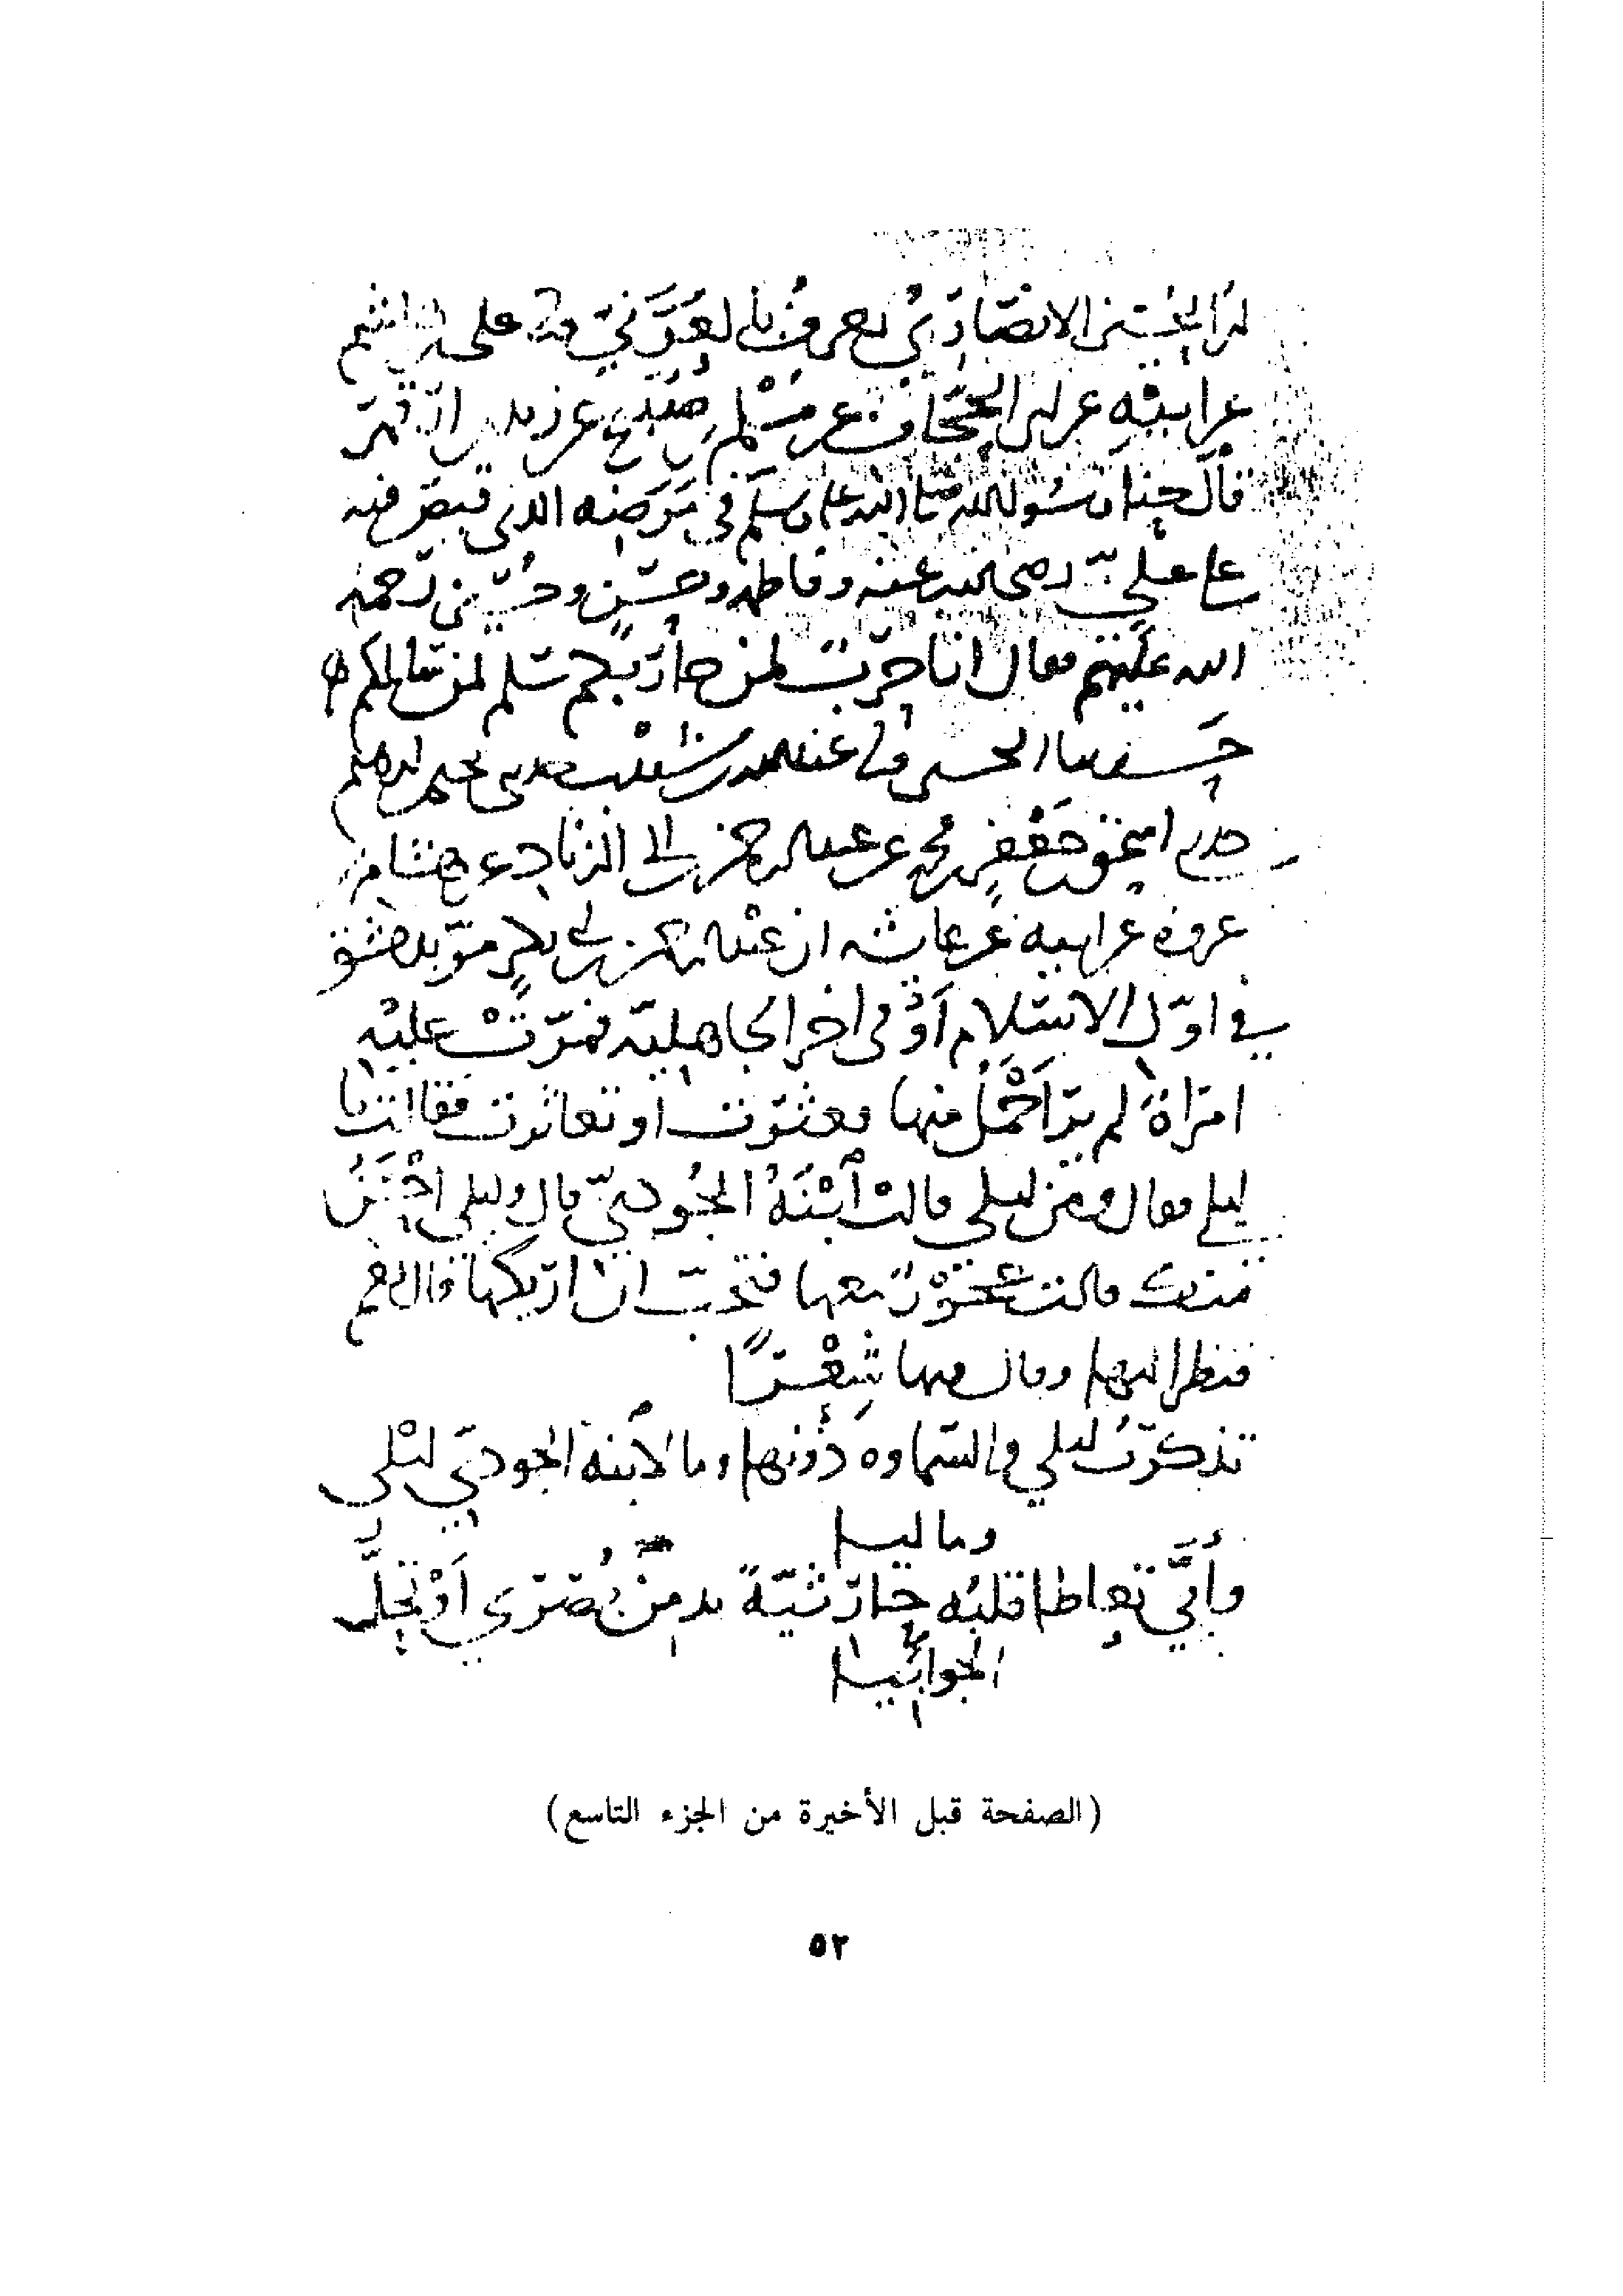 ابن الحسين الانصاري يعرف بالعرني نا علي بن هاشم
عن ابيه عن ابي الجحاف عن مسلم بن صبيح عن زيد بن ارقم
قال حنا رسول الله صلى الله عليه وسلم في مرضه الذي قبض فيه
على علي رضي الله عنه وفاطمه وحسن وحسين رحمه
الله عليهم فقال انا حرب لمن حاربكم سلم لمن سالمكم
الحسين نا عبدالله بن شبيب حدثني يحيى بن ابرهيم
حدثني اسحق بن جعفر بن محمد عن عبدالرحمن بن ابي الزناد عن هشام بن
عروه عن ابيه عن عائشه ان عبدالرحمن بن ابي بكر مرّ بدمشق
في اوّل الاسلام أوْ في اخر الجاهليّه فمرّتْ عليْه
امراةٌ لم يرَ اَجْمَلُ منها فعثرت او تعاثرت فقالت يا
ليلى فقال ومن ليلى قالت ٱبْنَهُ الجُوديّ قال وليلى احْسَنُ
منك قالت عجوْزٌ معها فتحبّ ان اريكها قال نعم
فنظر اليها وقال فيها شِعْرًا
تذكرّتُ ليلى والسّماوه دُونها وما لاٱبنه الجوديّ ليْلى
وماليا
وأَنَّي تعاطا قلبُه حارثيّةً بدمّن بُصرى اَوْ تحلّ
الجوابيا
(الصفحة قبل الأخيرة من الجزء التاسع)
٥٢